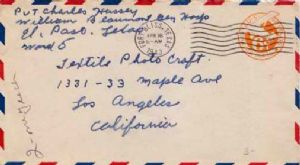 Pvt Charles Hussey
William Beaumont Gen Hosp
El. Paso. Texas
Ward 5
Textile Photo Craft.
1331-33 Maple Ave
Los Angeles
California